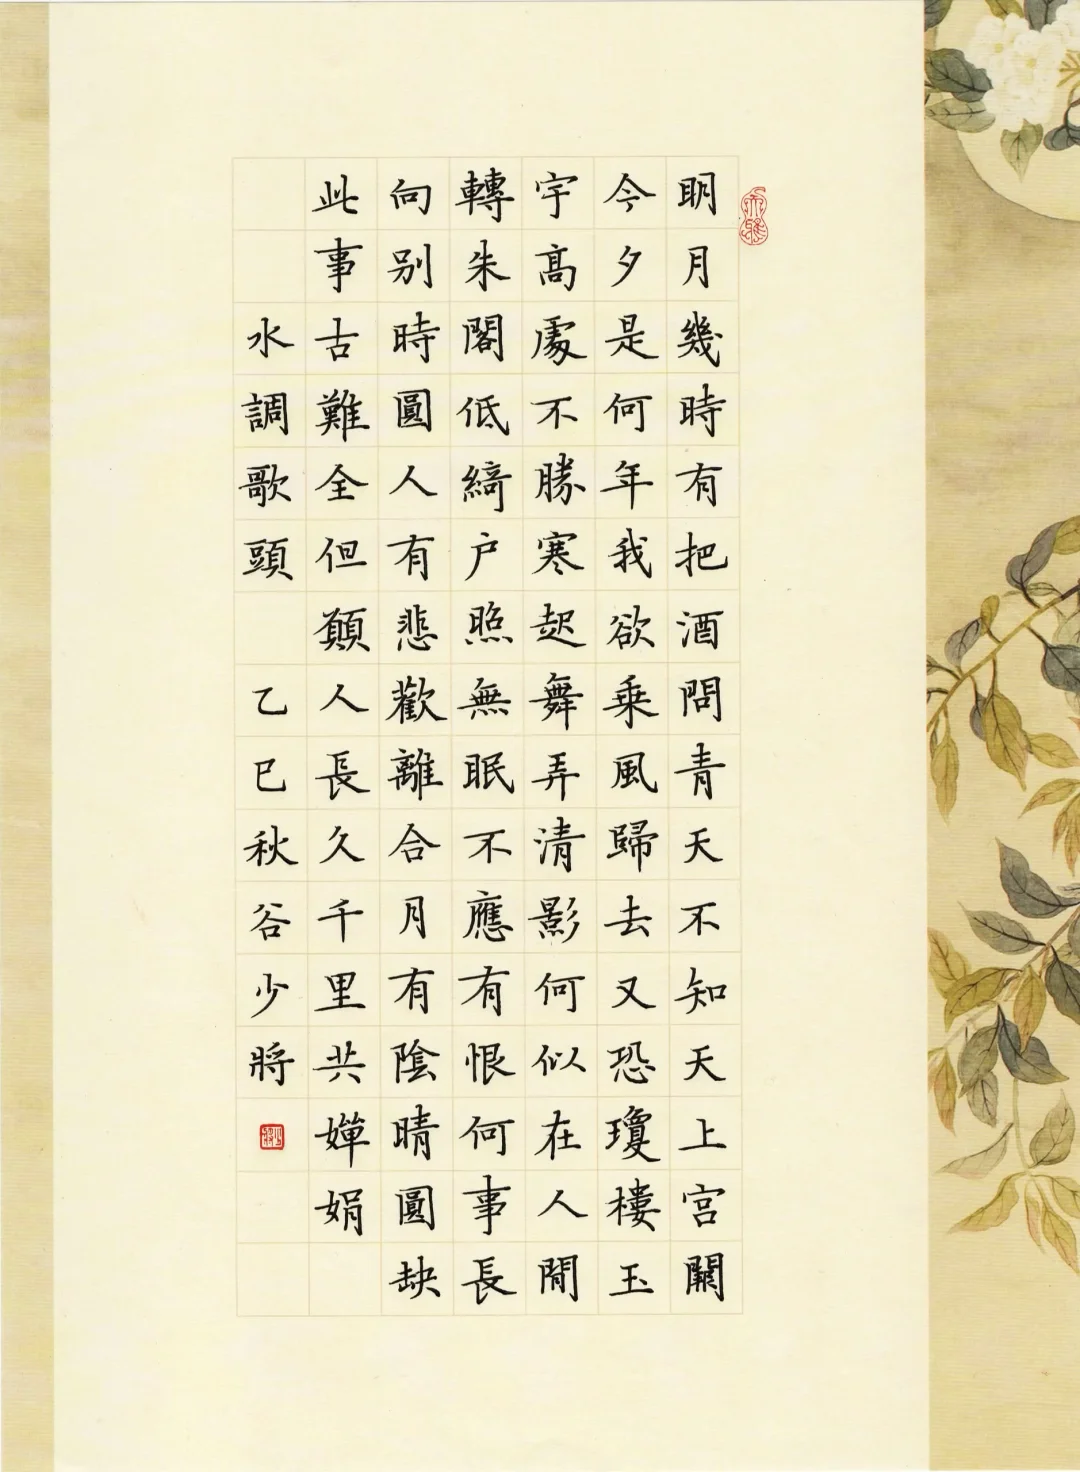 明月幾時有把酒問青天不知天上宮闕
今夕是何年我欲乘風歸去又恐瓊樓玉
宇高處不勝寒起舞弄清影何似在人間
轉朱閣低綺户照無眠不應有恨何事長
向别時圓人有悲歡離合月有陰晴圓缺
此事古難全但願人長久千里共嬋娟
水調歌頭 乙巳秋谷少將